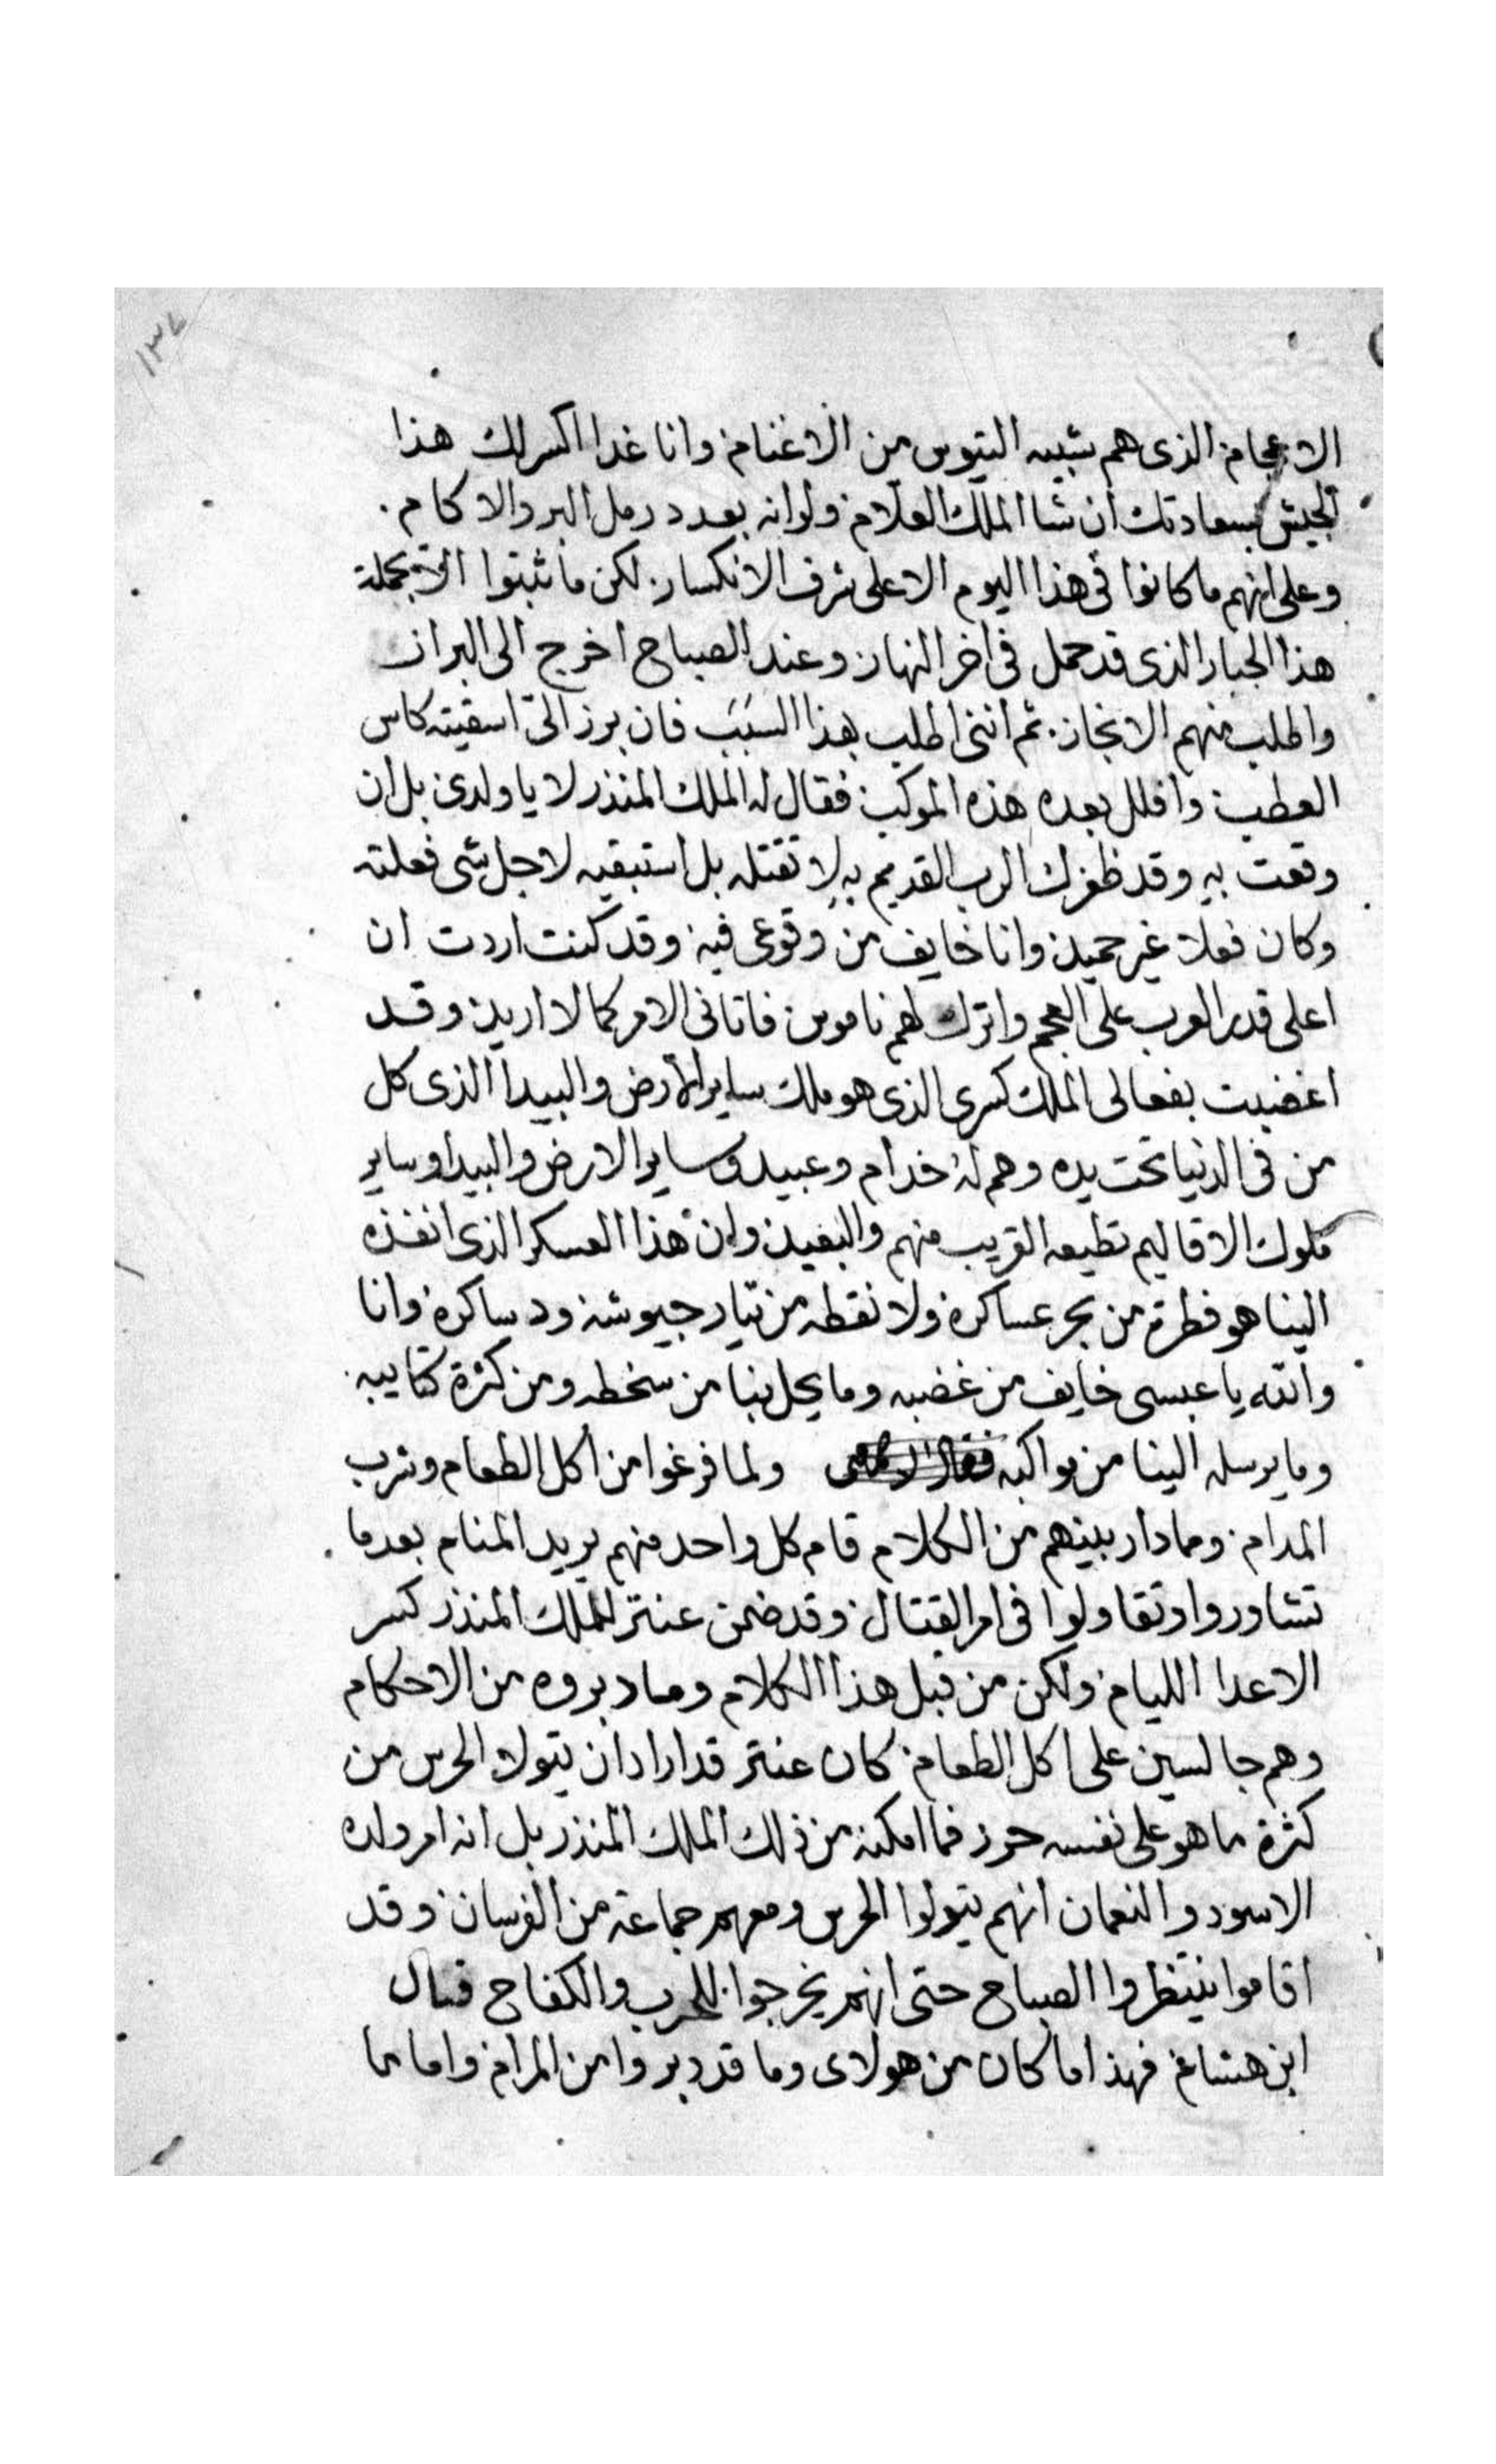 ١٣٧
الاعجام الذى هم شبيه التيوس من الاغنام وانا غدا اكسر لك هذا
الجيش بسعادتك ان شا الملك العلام ولو انه بعدد رمل البر والاكام
وعلى انهم ما كانوا فى هذا اليوم الا على شرف الانكسار لكن ما ثبتوا الا بحملة
هذا الجبار الذى قد حمل فى اخر النهار وعند الصباح اخرج الى البراز
واطلب منهم الانجاز ثم اننى اطلب هذا السبب فان برز الى اسقيته كاس
العطب وافلل بعده هذه الموكب فقال له الملك المنذر لا يا ولدى بل ان
وقعت به وقد ظفرك الرب القديم به لا تقتله بل استبقيه لاجل شى فعلته
وكان فعلا غير حميد وانا خايف من وقوعى فيه وقد كنت اردت ان
اعلى قدر العرب على العجم واترك لهم ناموس فاتانى الامر كما لا اريد وقد
اغضبت بفعالى الملك كسرى الذى هو ملك ساير الارض والبيدا الذى كل
من فى الدنيا تحت يده وهم له خدام وعبيد وساير الارض والبيدا وساير
ملوك الاقاليم تطيعه القريب منهم والبعيد وان هذا العسكر الذى انفذه
الينا هو قطرة من بحر عساكره ولا نقطه من تيار جيوشه ودساكره وانا
والله يا عبسى خايف من غضبه وما يحل بنا من سخطه ومن كثرة كتايبه
وما يرسله الينا من مواكبه ولما فرغوا من اكل الطعام وشرب
المدام وما دار بينهم من الكلام قام كل واحد منهم يريد المنام بعد ما
تشاوروا وتقاولوا فى امر القتال وقد ضمن عنتر للملك المنذر كسر
الاعدا الليام ولكن من قبل هذا الكلام وما دبروه من الاحكام
وهم جالسين على اكل الطعام كان عنتر قد اراد ان يتولا الحرس من
كثرة ما هو على نفسه حرز فما امكنه من ذلك الملك المنذر بل انه امر ولده
الاسود والنعمان انهم يتولوا الحرس ومعهم جماعة من الفرسان وقد
اقاموا ينتظروا الصباح حتى انهم يخرجوا للحرب والكفاح قال
ابن هشام فهذا ما كان من هولاى وما قد دبروا من المرام واما ما